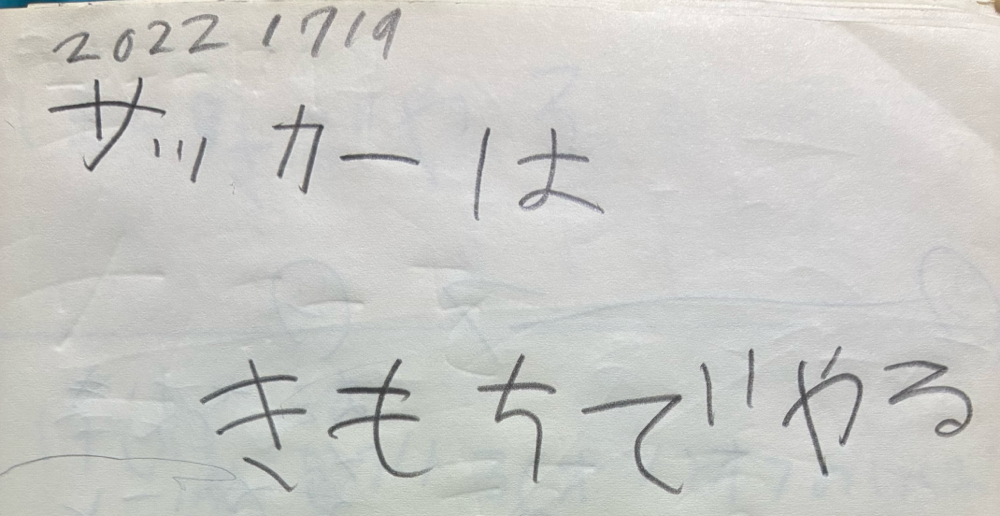 2022 1719
サッカーは
きもちでやる